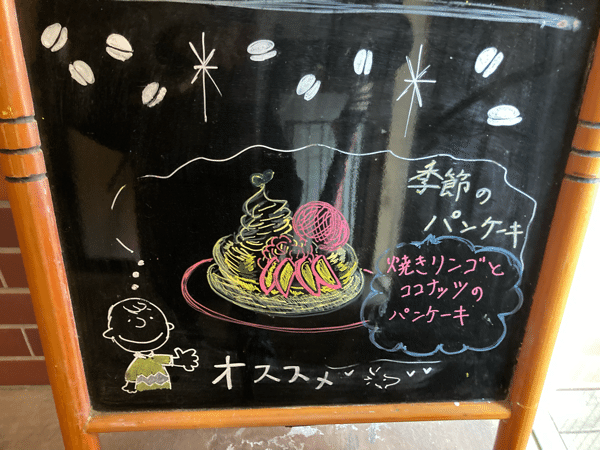 季節の
パンケーキ
焼きリンゴと
ココナッツの
パンケーキ
オススメ